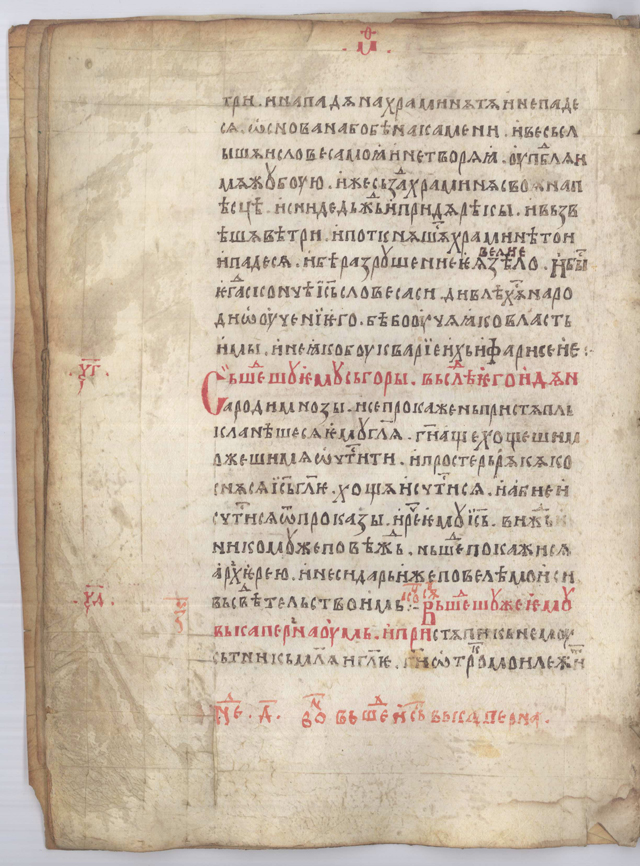 м҃
три · и нападѫ на храминѫ тѫ и не паде
сѧ · ѡснована бо бѣ на камени · и вьсь сл
ышѧи словеса моꙗ и не творѧ ꙗ · ѹпⷣблѧ и
мѫжꙋ боую · иже сьзⷣа храминѫ своѫ на п
ѣсцѣ · и сниде дьжⷣь и придѫ рѣкы · и вьзв
ѣѧшѫ вѣтри · и поткнѫшѫ храминѣ тои
и падесѧ · и бѣ разрꙋшение ѥѧ велие ѕѣло · и быⷭ
ѥгⷣа сконча і҃сь словеса си · дивлѣхѫ народ
и ѡ оучени ѥго · бѣ бо оучѧ ꙗко власть
имы · и не ꙗко боуквариѥ ихь и фарисеие :
ч҃г
Сьшешꙋ ѥмꙋ сь горы · вь слѣⷣ ѥго идѫ н
ароди мнозы · и се прокажень пристѫпль
кланѣше сѧ ѥмꙋ гл҃ѧ · г҃и аще хощеши м
ожеши мѧ ѡчⷭтити · и простерь рѫкѫ ко
снѫ сѧ і҃сь гл҃ѥ · хощѫ ѡчⷭти сѧ · и абиѥ ѡ
чⷭти сѧ ѿ проказы · и реⷱ ѥмоу і҃сь · вижⷣь н
и комꙋже повѣжⷣь · нь шеⷣ покажи сѧ
архиѥрею · и принеси дарь иже повелѣ мѡиси
ч҃д
вь свѣⷣтельство имь :- Вьшешꙋ же ѥмꙋ
вь каперьнаоумь · и пристѫпи кь немꙋ
сьтникь молѧ и и гл҃ѥ · г҃и ѡтрокⷦ мои лежиⷮ
неⷣ · д҃ · воⷨ вьшеⷣ і҃сь вь каперна ·